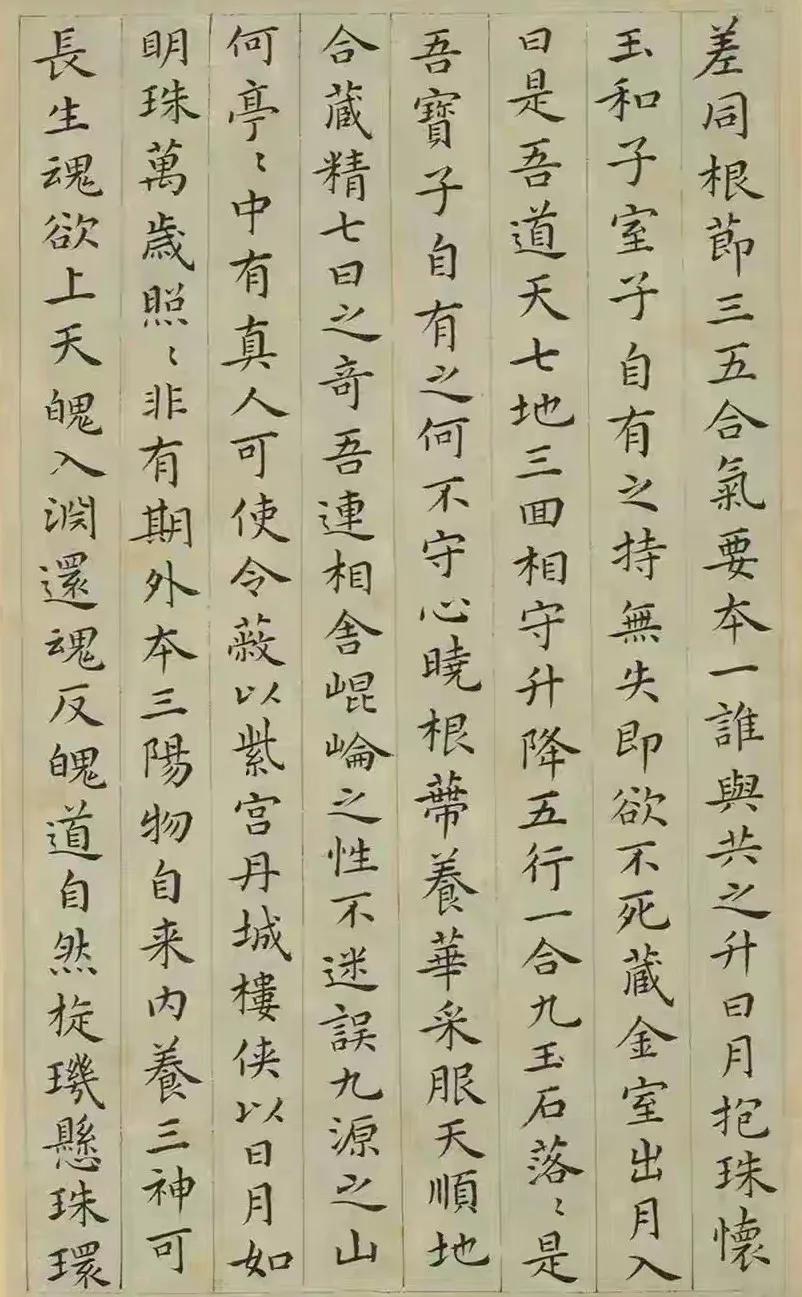 差同根節三五合氣要本一誰與共之升日月抱珠懷
玉和子室子自有之持無失即欲不死藏金室出月入
日是吾道天七地三回相守升降五行一合九玉石落〻是
吾寶子自有之何不守心曉根蔕養華采服天順地
合藏精七日之奇吾連相舍崐崘之性不迷誤九源之山
何亭〻中有真人可使令蔽以紫宮丹城樓俠以日月如
明珠萬歲照〻非有期外本三陽物自来內養三神可
長生魂欲上天魄入淵還魂反魄道自然旋璣懸珠環